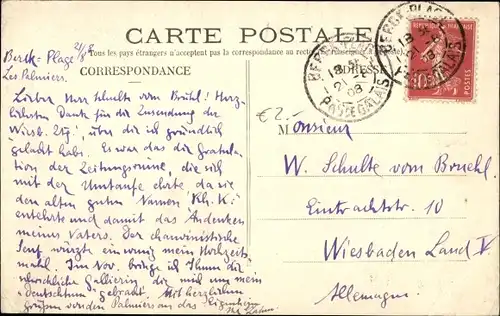 CARTE POSTALE
Tous les pays étrangers n'acceptent pas la correspondance au recto
CORRESPONDANCE
ADRESSE
BERCK-PLAGE
18
21
08
PAS-DE-CALAIS
10
Berck-Plage 21/8
Les Palmiers.
Lieber Herr Schulte vom Brühl! Herz-
lichsten Dank für die Zusendung der
Wiesb. Ztg., über die ich gründlich
gelacht habe. Es war das die Gratula-
tion der Zeitungs die sich
mit der Umtaufe ehrte, da sie
den alten guten Namen Rh. K.
entehrte und damit das Andenken
meines Vaters. Der chauvinistische
Senf würzte ein wenig mein Hochzeits-
mahl. Im Nov. bringe ich Ihnen die
Gallierin die mich um mein
Deutschtum gebracht. Mit herzlichen
Grüßen von den Palmiers an das Eigenheim
Ihr
€2.
Monsieur
W. Schulte vom Bruehl.
Eintrachtstr. 10
Wiesbaden Land V
Allemagne.